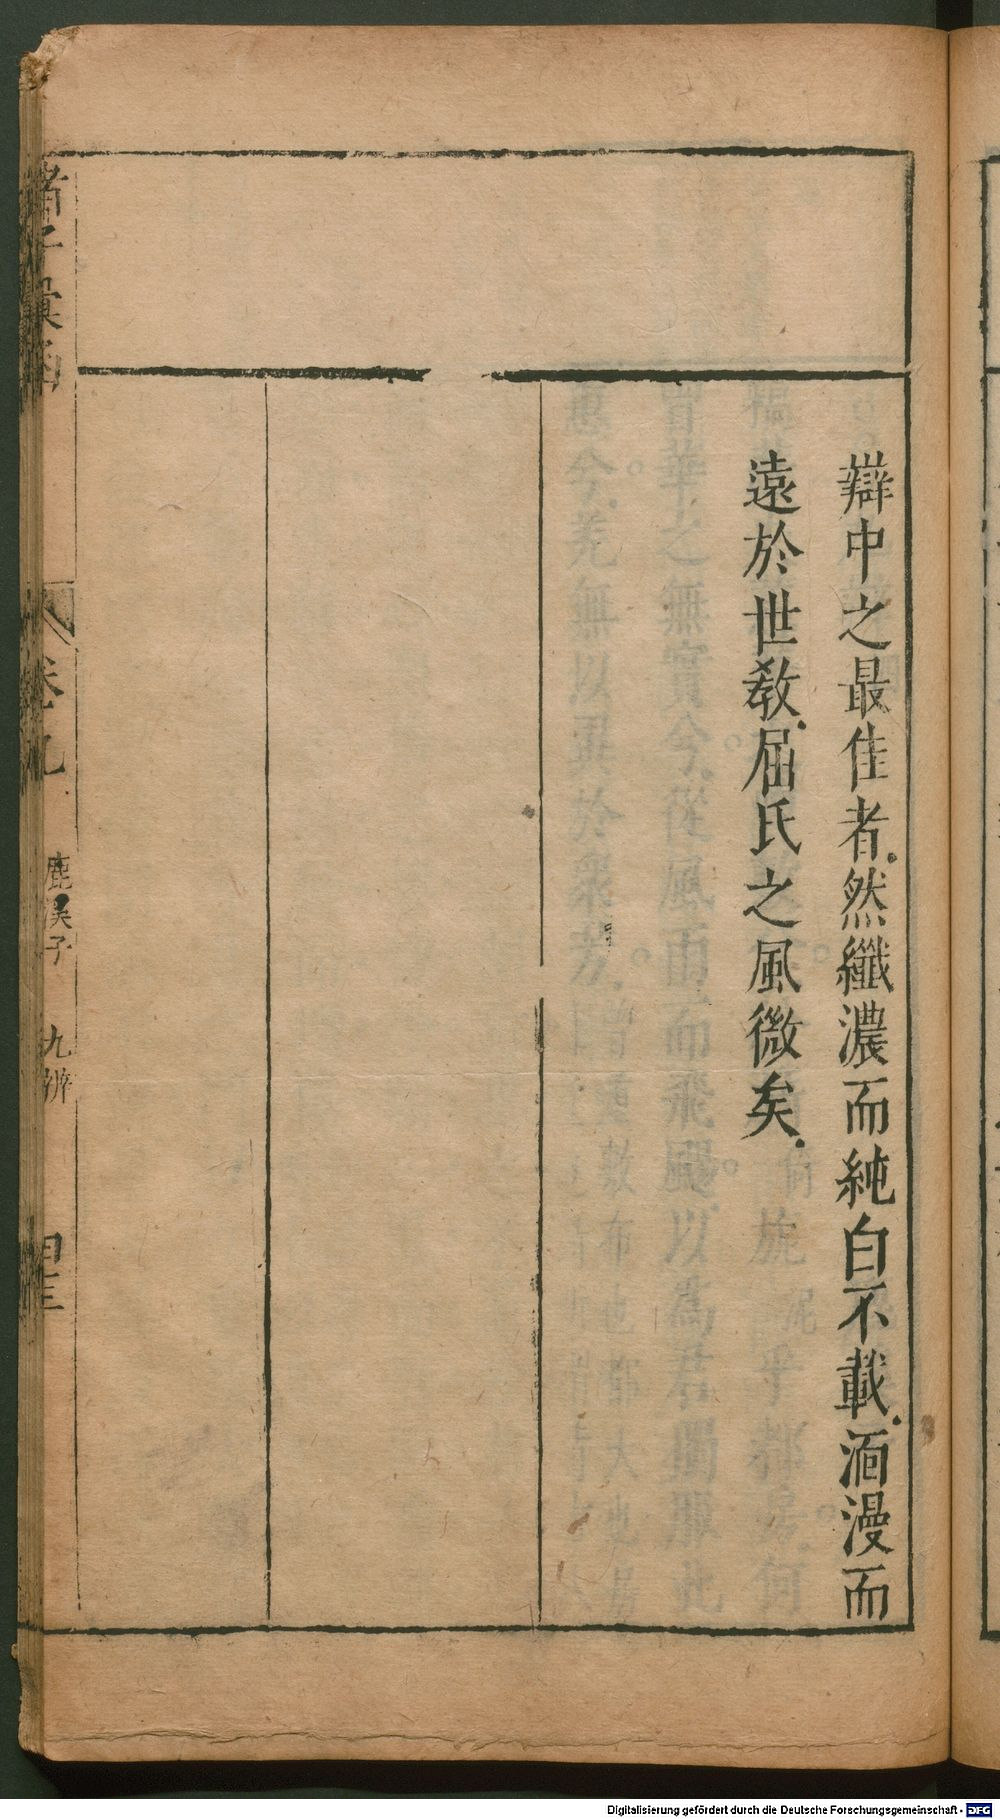 辯中之最佳者.然纖濃而純白不載.湎漫而
遠於世教.屈氏之風微矣.
諸子彙函
卷九
鹿溪子
九辨
Digitalisierung gefördert durch die Deutsche Forschungsgemeinschaft - DFG